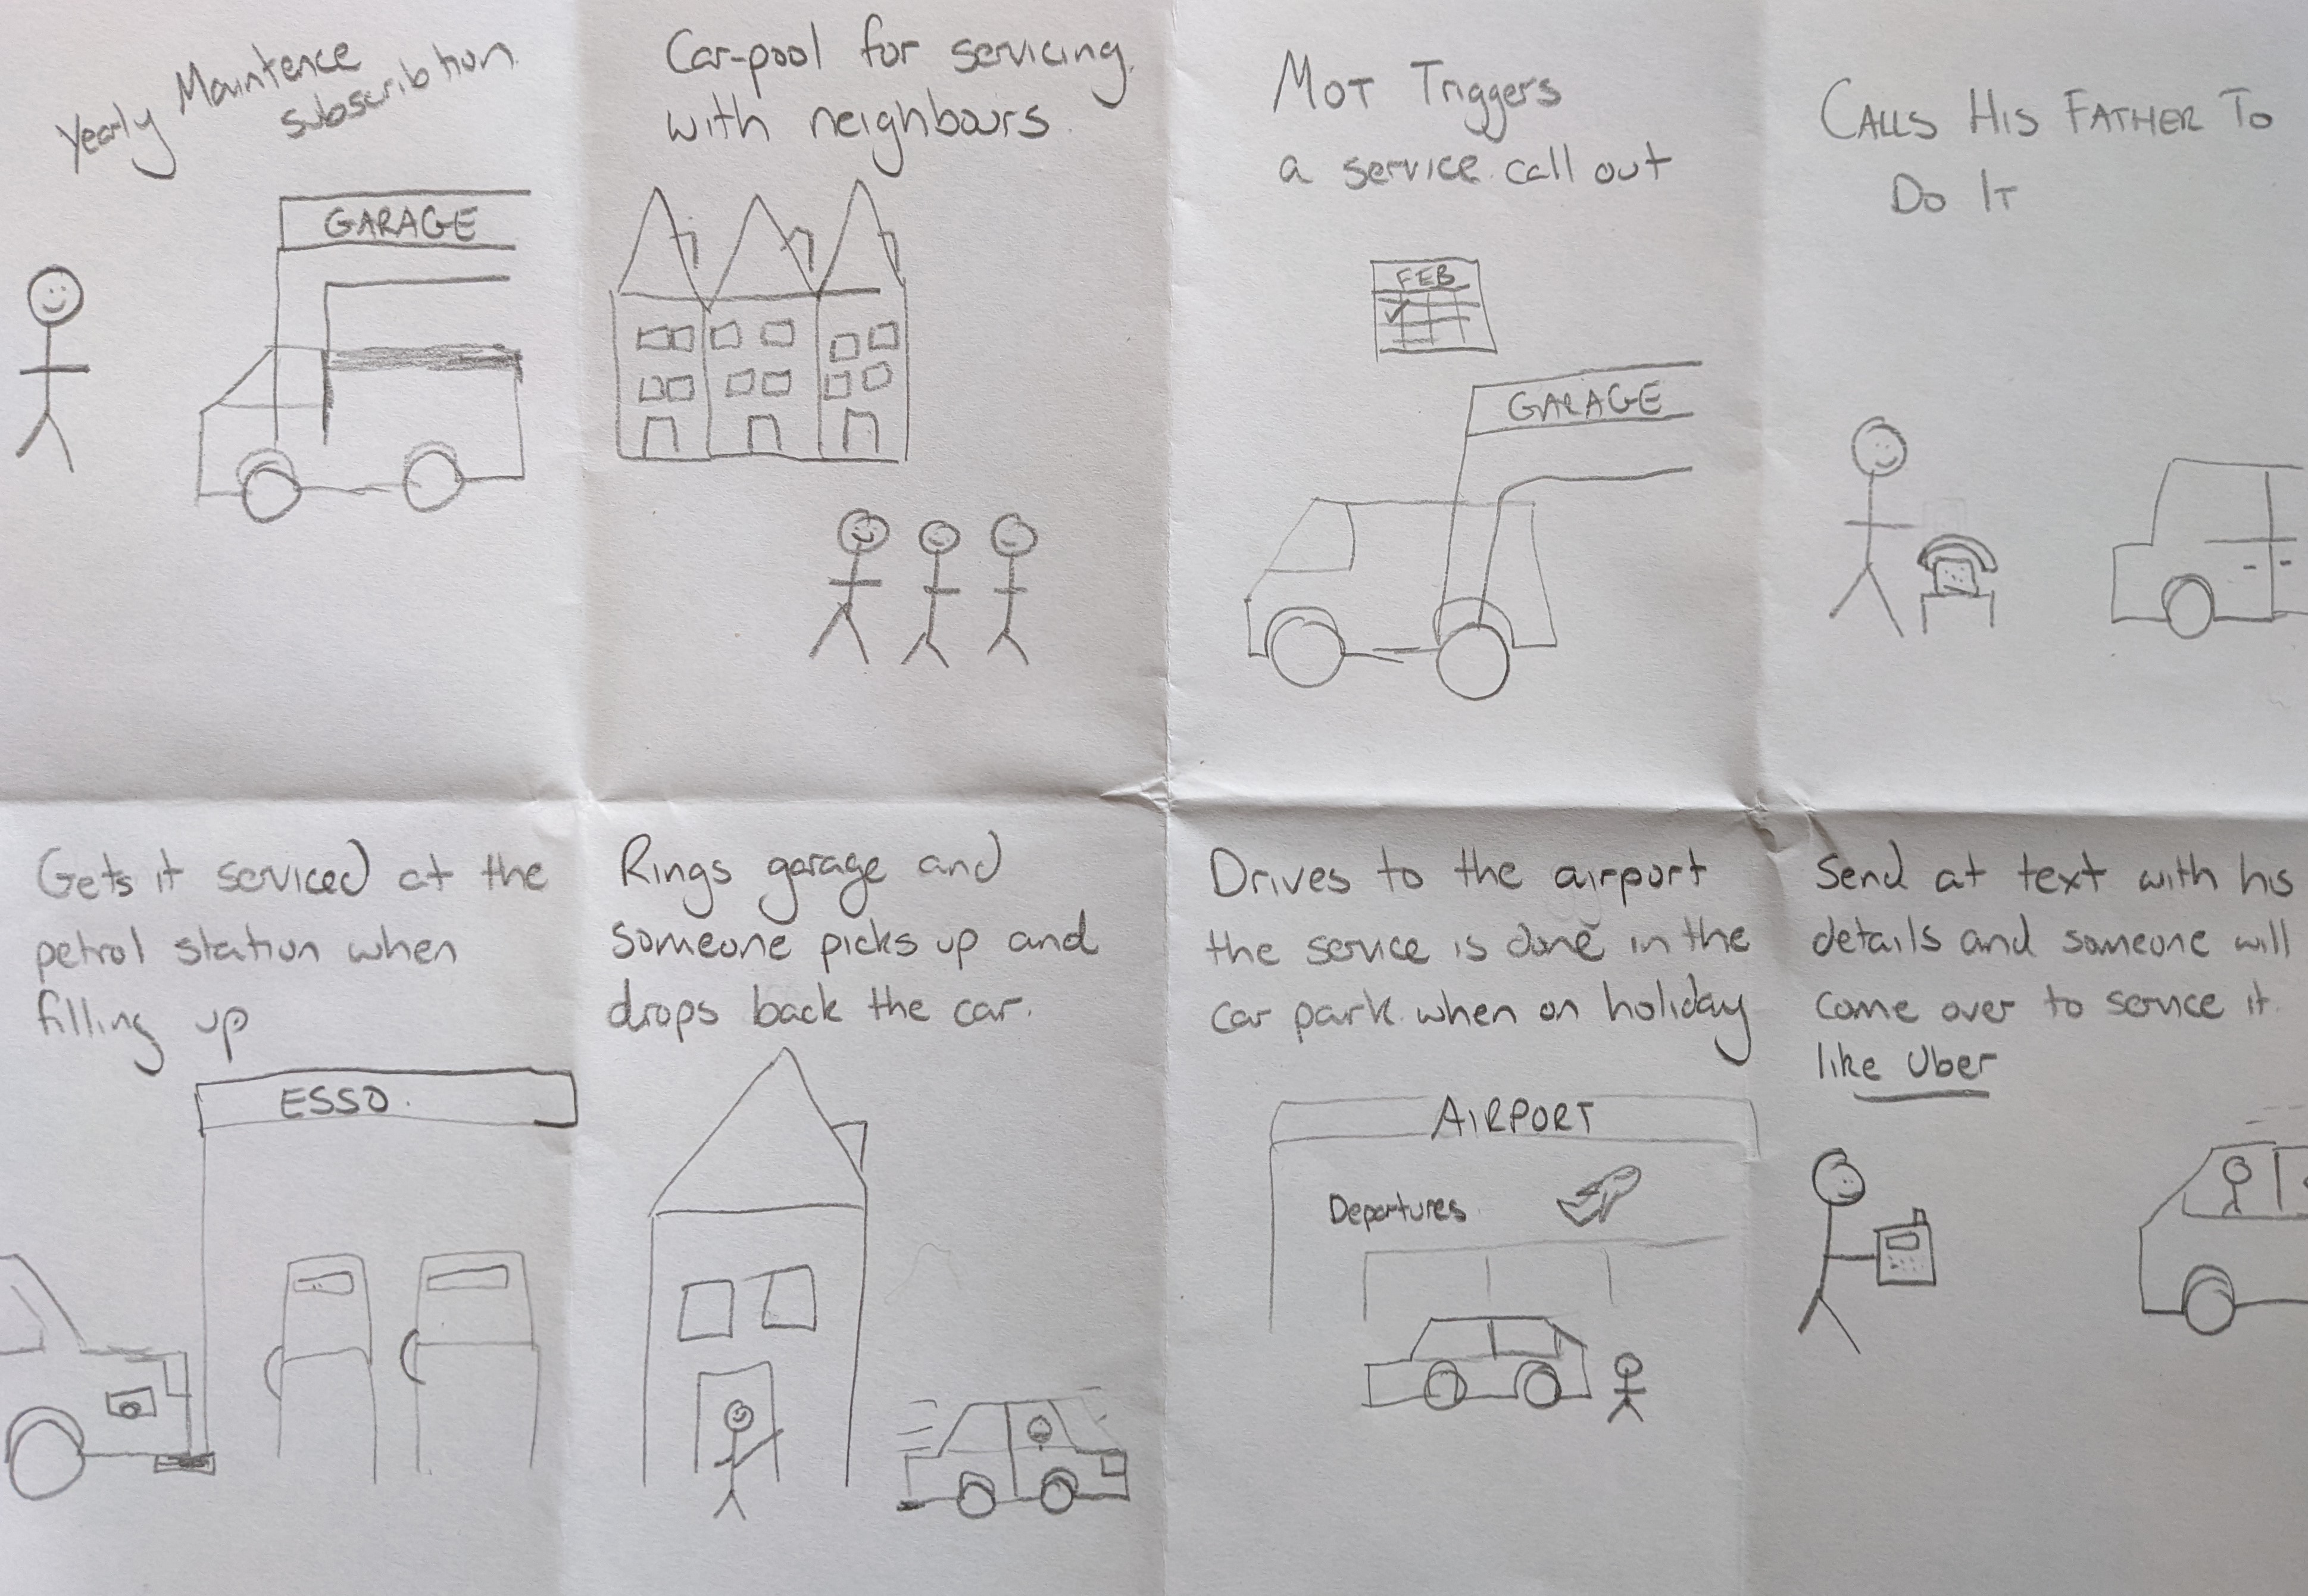 Yearly Maintence
subscribtion
GARAGE
Car-pool for servicing.
with neighbours.
MOT Triggers
a service call out
FEB
GARAGE
CALLS HIS FATHER TO
DO IT
Gets it serviced at the
petrol station when
filling up
ESSO.
Rings garage and
someone picks up and
drops back the car.
Drives to the airport
the service is done in the
car park when on holiday
AIRPORT
Departures
Send at text with his
details and someone will
come over to service it.
like Uber